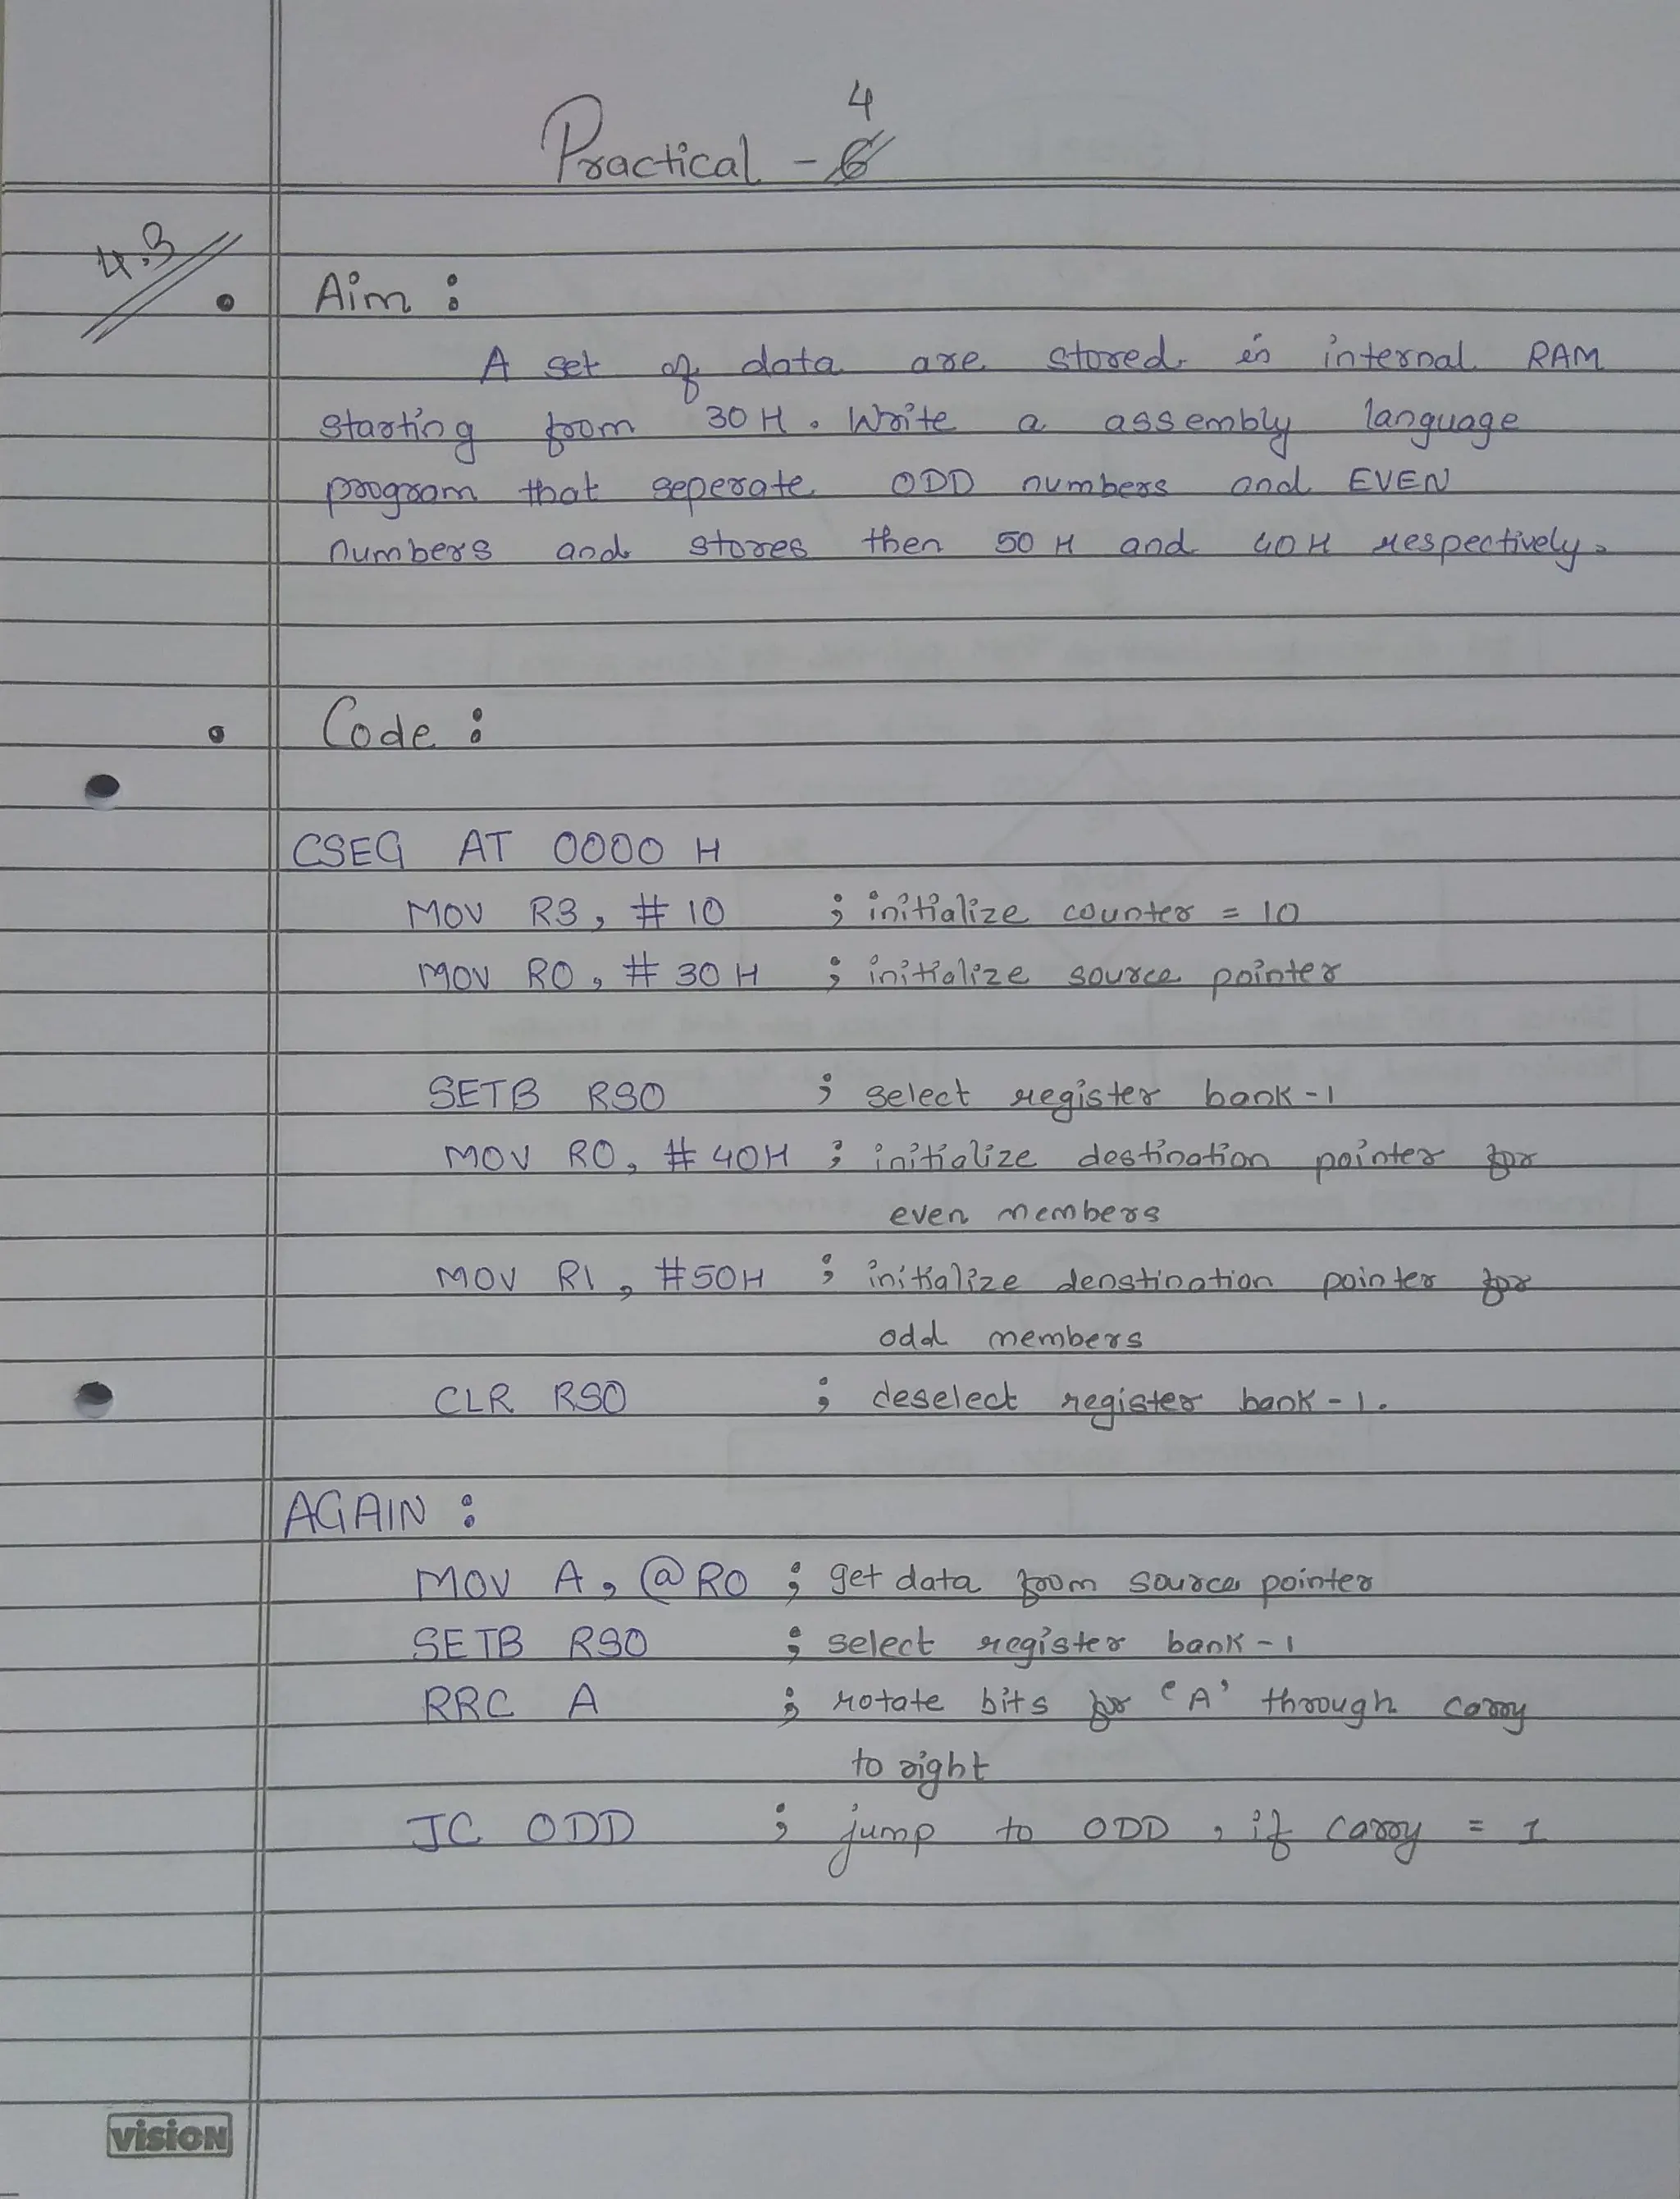 4
Practical - 6
4.3
• Aim :
A set of data are stored in internal RAM
starting from 30 H. Write a assembly language
program that seperate ODD numbers and EVEN
numbers and stores then 50 H and 40 H respectively.
• Code :
CSEG AT 0000 H
MOV R3, # 10 ; initialize counter = 10
MOV R0, # 30 H ; initialize source pointer
SETB RS0 ; select register bank-1
MOV R0, # 40H ; initialize destination pointer for
even members
MOV R1, #50H ; initialize denstination pointer for
odd members
CLR RS0 ; deselect register bank-1.
AGAIN :
MOV A, @R0 ; get data from source pointer
SETB RS0 ; select register bank-1
RRC A ; rotate bits for 'A' through carry
to right
JC ODD ; jump to ODD, if carry = 1
VISION